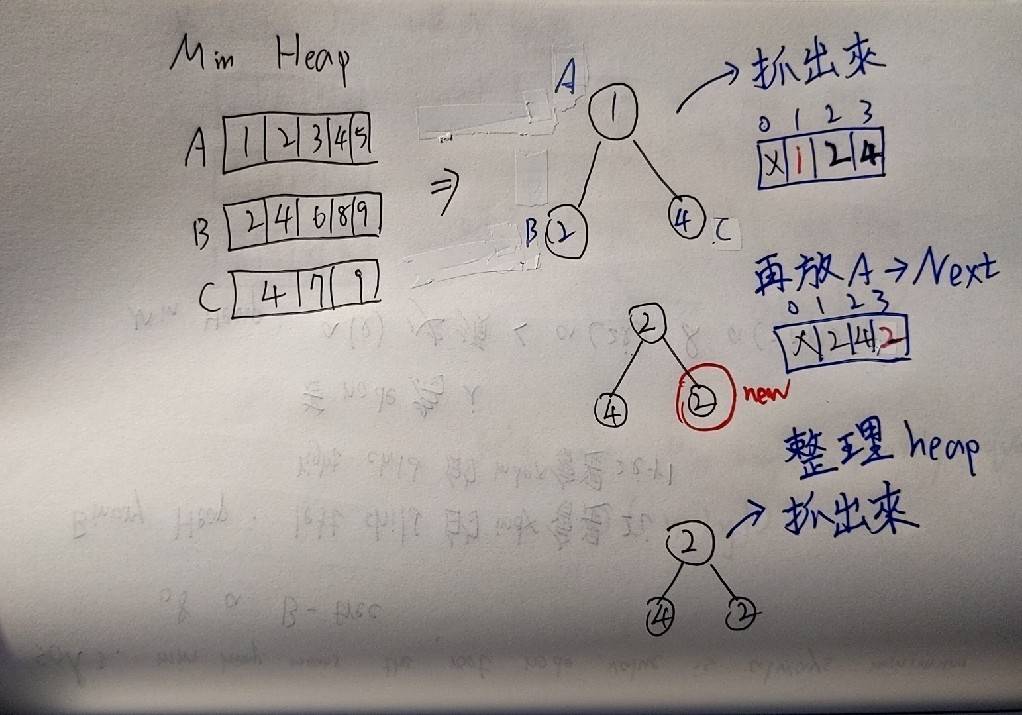 Min Heap
A 1 2 3 4 5
B 2 4 6 8 9
C 4 7 9
⇒
A
1
B 2
4 C
→ 抓出來
0 1 2 3
X 1 2 4
再放 A → Next
0 1 2 3
X 2 4 2
2
4
2 new
整理 heap
→ 抓出來
2
4
2